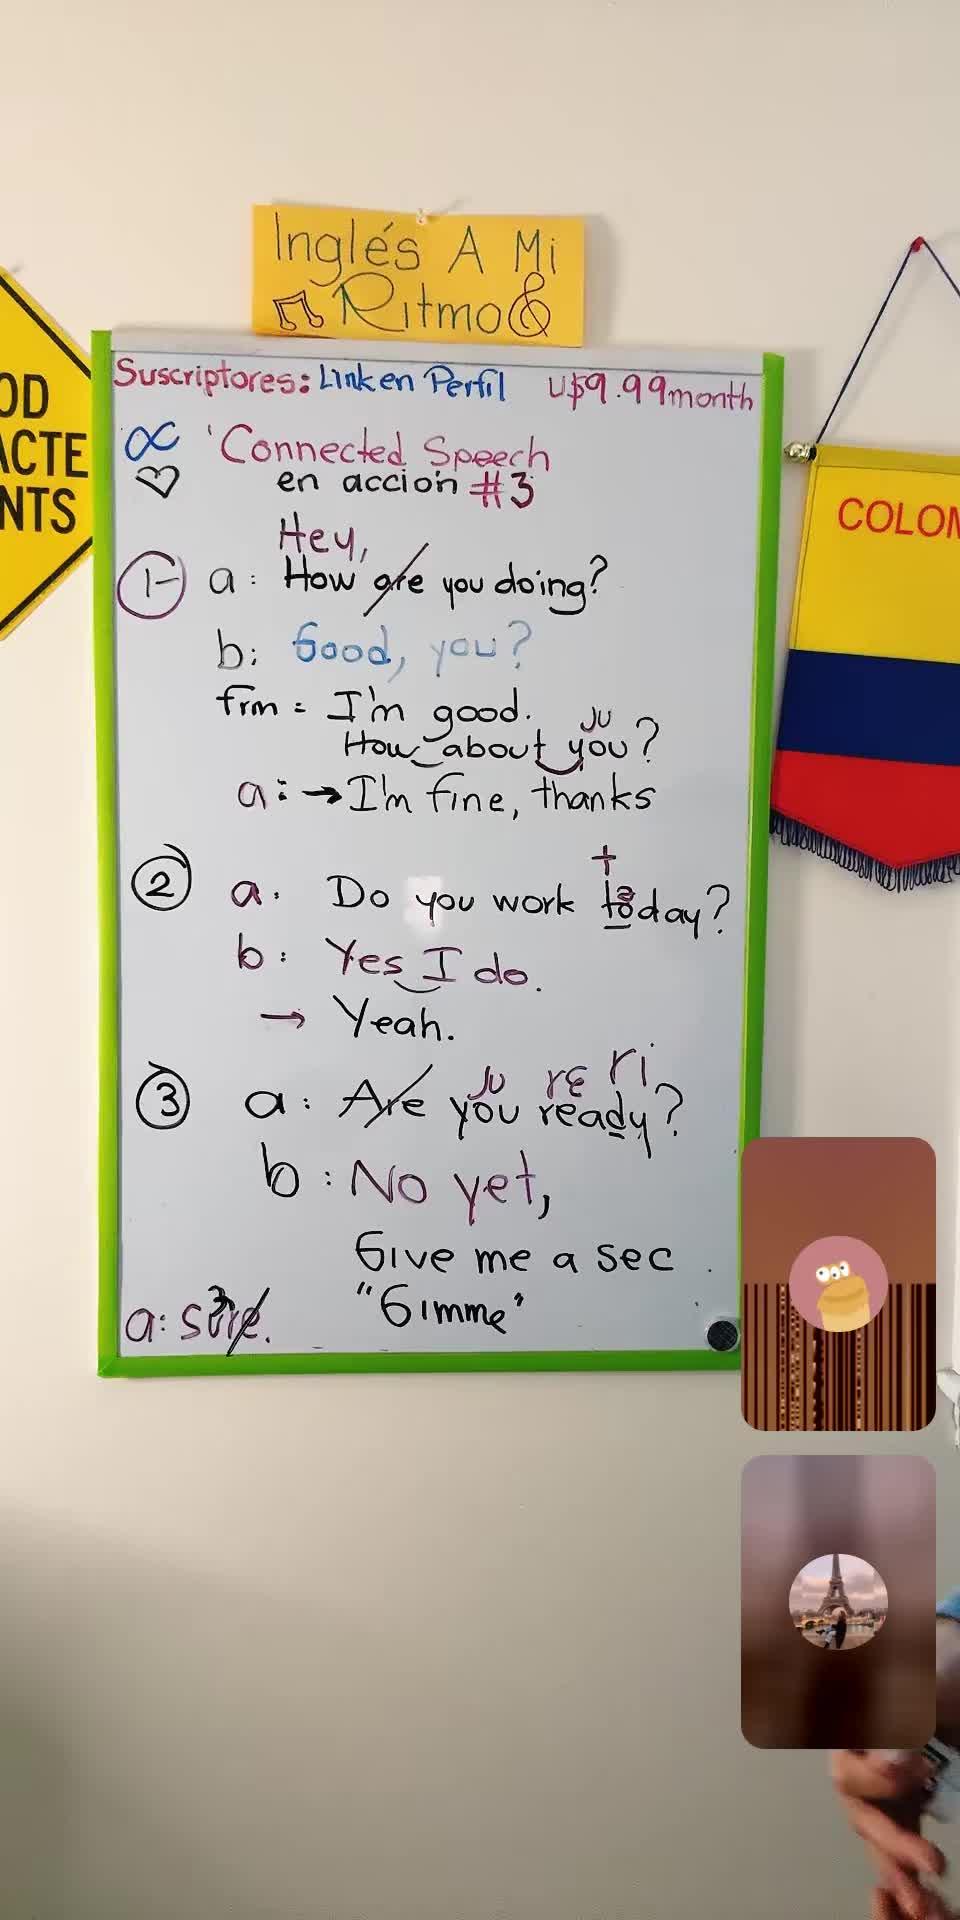 Inglés A Mi
Ritmo
OD
ACTE
NTS
COLOM
Suscriptores: Link en Perfil U$9.99 month
Connected Speech
en acción #3
Hey,
1- a: How are you doing?
b: Good, you?
frm = I'm good.
JU
How about you?
a: → I'm fine, thanks
t
2 a. Do you work today?
b: Yes I do.
→ Yeah.
JU rɛ ri
3 a: Are you ready?
b: No yet,
Give me a sec.
"Gimme"
a: sure.